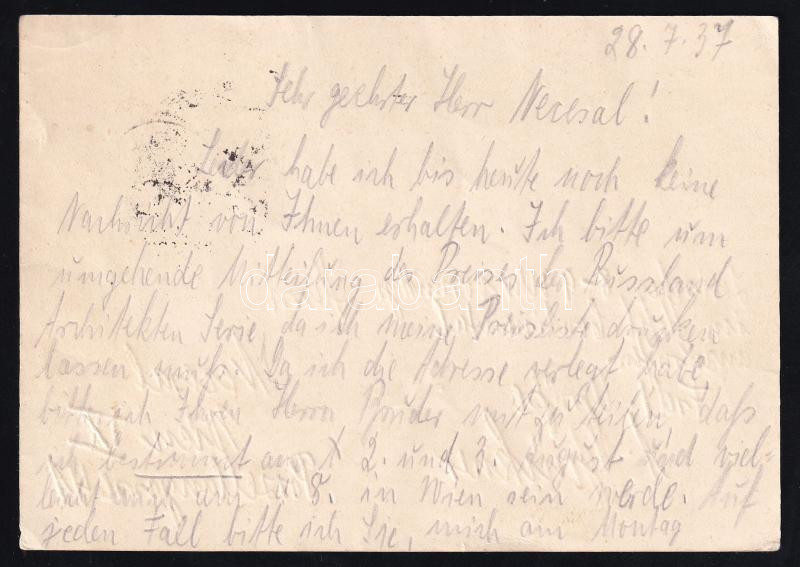 28. 7. 37
Sehr geehrter Herr Necesal!
Leider habe ich bis heute noch keine
Nachricht von Ihnen erhalten. Ich bitte um
umgehende Mitteilung des Preises der Russland
Architekten Serie, da ich meine Preisliste drucken
lassen muß. Da ich die Adresse verlegt habe,
bitte ich Ihren Herrn Bruder mitzuteilen, daß
ich bestimmt am 2. und 3. August und viel-
leicht auch am 8. in Wien sein werde. Auf
jeden Fall bitte ich Sie, mich am Montag
darabanth